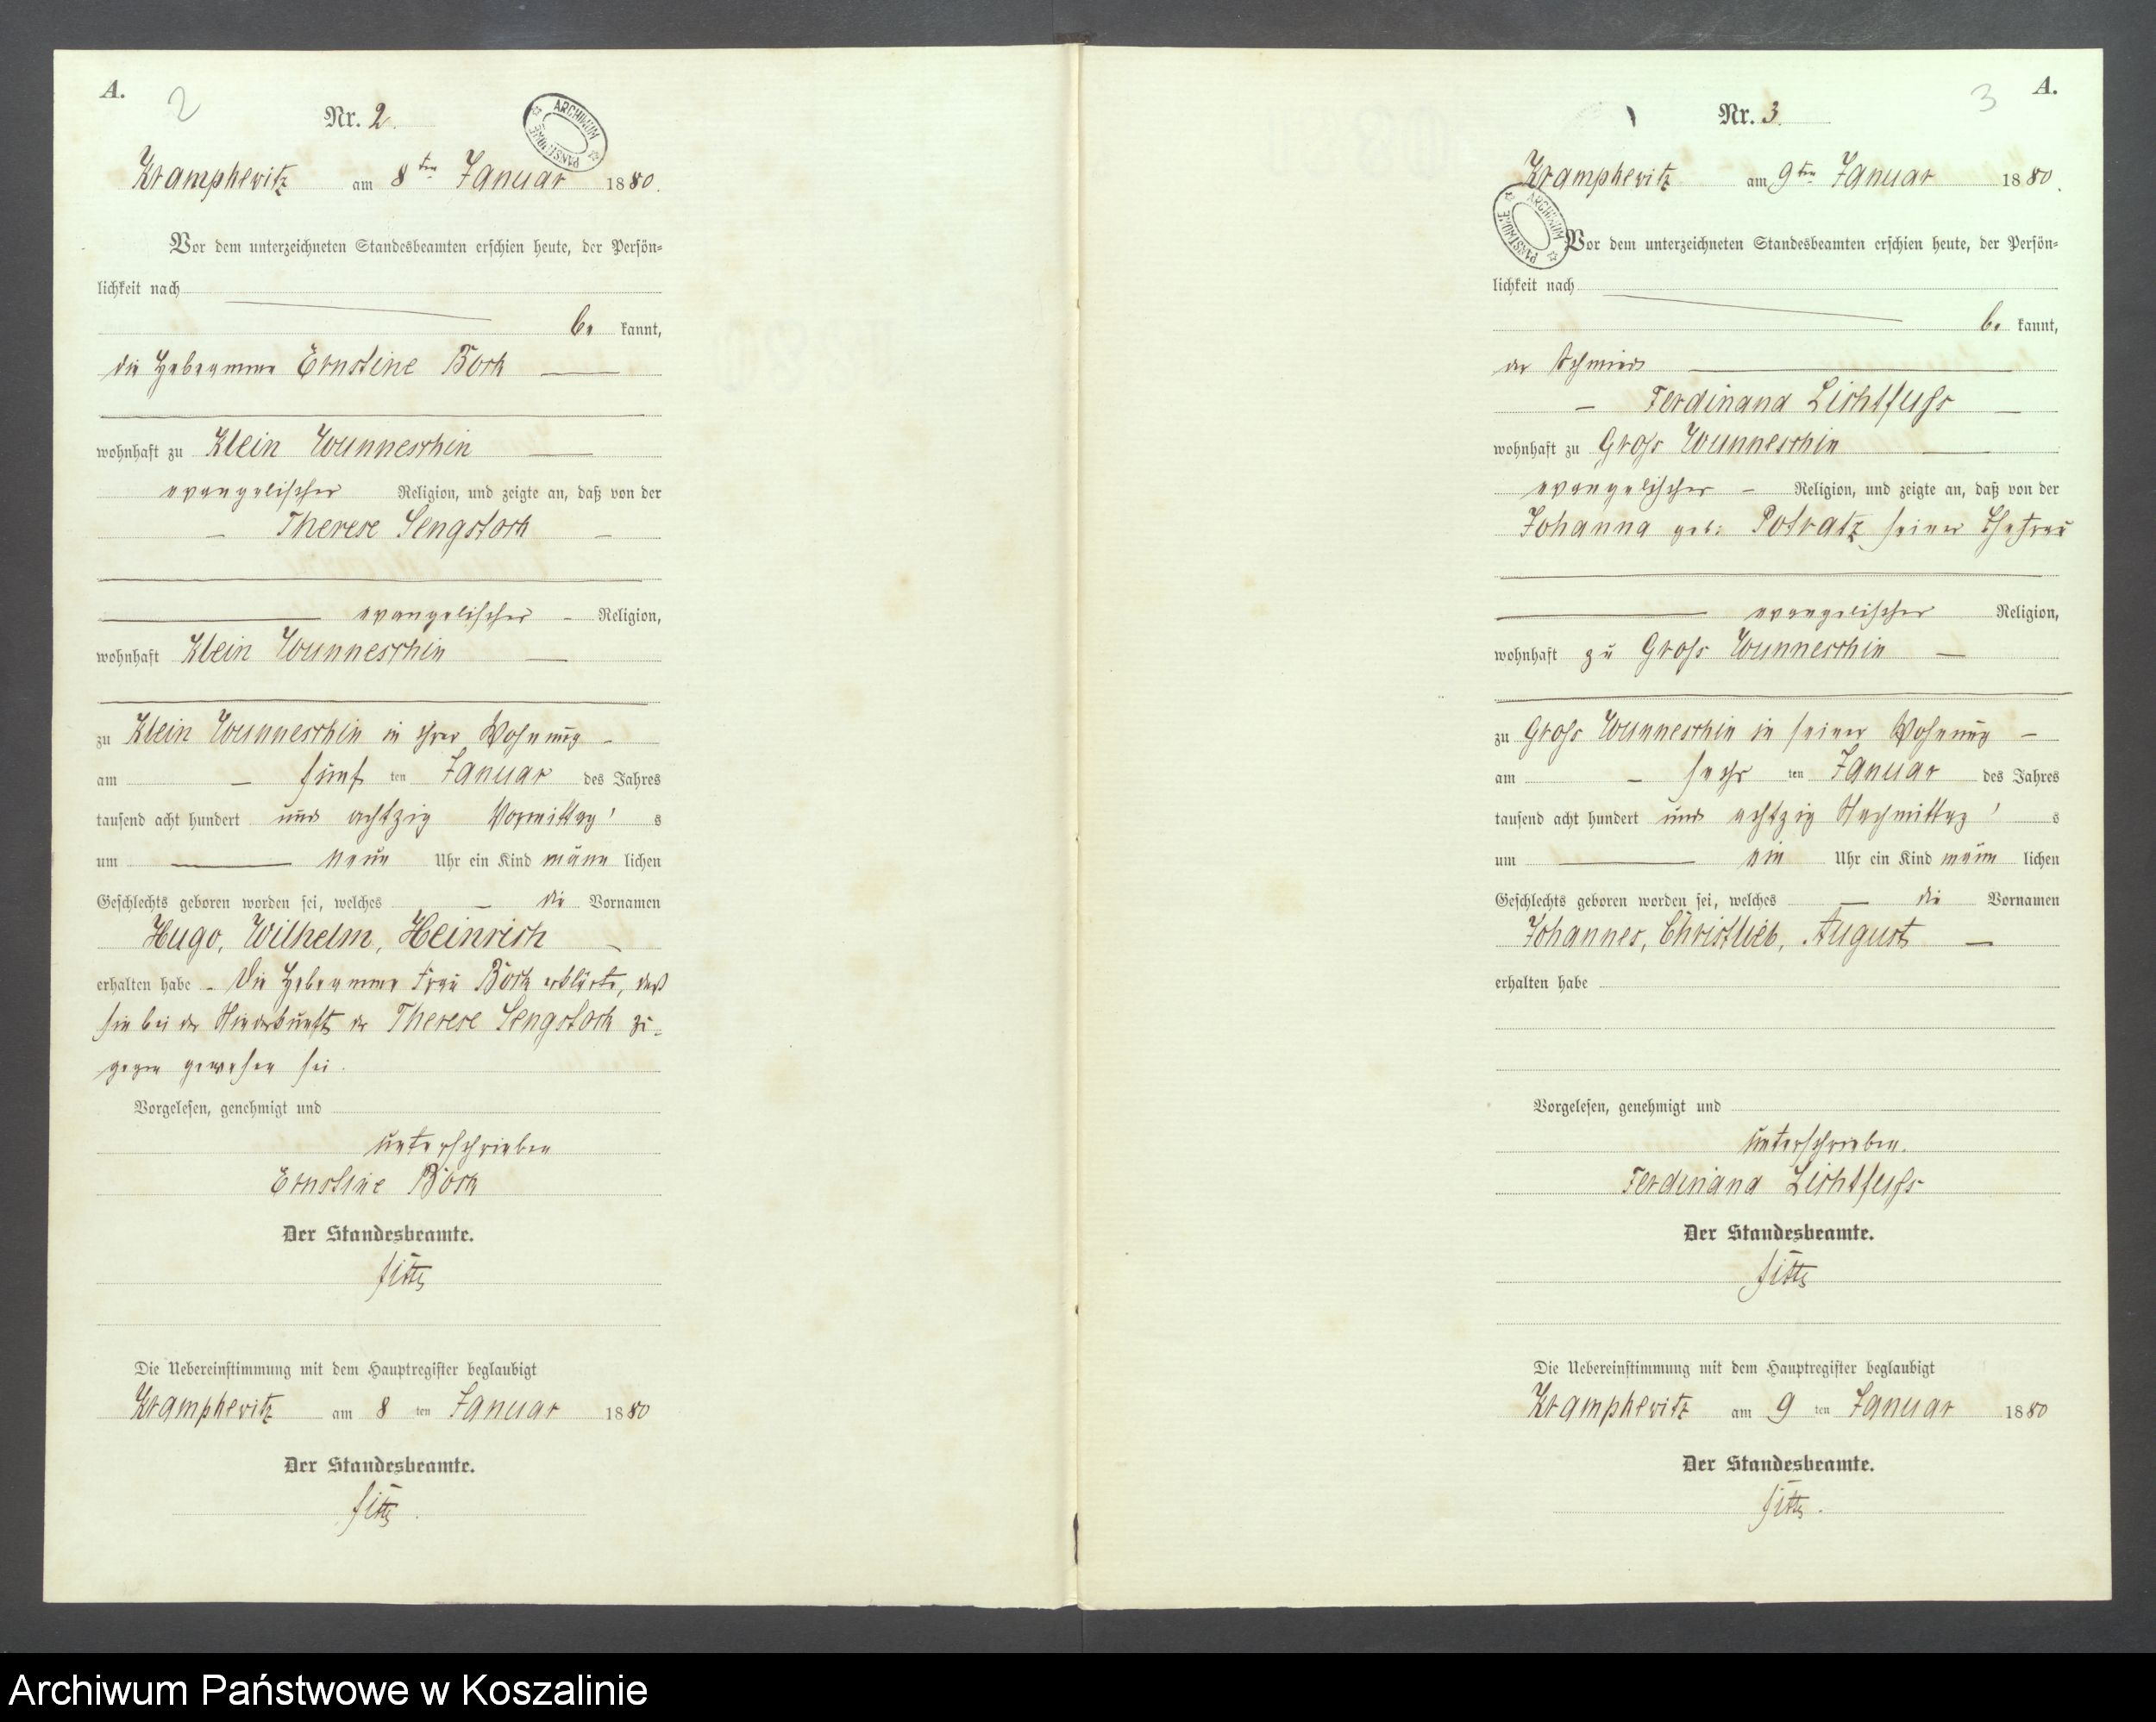 A.
2
Nr. 2.
ARCHIWUM PAŃSTWOWE
Kramphewitz am 8ten Januar 1880.
Vor dem unterzeichneten Standesbeamten erschien heute, der Persön=
lichkeit nach
be kannt,
die Hebeamme Ernstine Bock
wohnhaft zu Klein Wunneschin
evangelischer Religion, und zeigte an, daß von der
Therese Sengstock
evangelischer Religion,
wohnhaft Klein Wunneschin
zu Klein Wunneschin in ihrer Wohnung
am fünf ten Januar des Jahres
tausend acht hundert und achtzig Vormittag s
um neun Uhr ein Kind männ lichen
Geschlechts geboren worden sei, welches die Vornamen
Hugo, Wilhelm, Heinrich
erhalten habe. Die Hebeamme Frau Bock erklärte, daß
sie bei der Niederkunft der Therese Sengstock zu=
gegen gewesen sei.
Vorgelesen, genehmigt und
unterschrieben
Ernstine Bock
Der Standesbeamte.
Die Uebereinstimmung mit dem Hauptregister beglaubigt
Kramphewitz am 8 ten Januar 1880
Der Standesbeamte.
A.
3
Nr. 3.
Kramphewitz am 9ten Januar 1880.
ARCHIWUM PAŃSTWOWE
Vor dem unterzeichneten Standesbeamten erschien heute, der Persön=
lichkeit nach
be kannt,
der Schmied
Ferdinand Lichtfuss
wohnhaft zu Gross Wunneschin
evangelischer Religion, und zeigte an, daß von der
Johanna geb: Potratz, seiner Ehefrau
evangelischer Religion,
wohnhaft zu Gross Wunneschin
zu Gross Wunneschin in seiner Wohnung
am sechs ten Januar des Jahres
tausend acht hundert und achtzig Nachmittag s
um ein Uhr ein Kind männ lichen
Geschlechts geboren worden sei, welches die Vornamen
Johannes, Christlieb, August
erhalten habe
Vorgelesen, genehmigt und
unterschrieben.
Ferdinand Lichtfuss
Der Standesbeamte.
Die Uebereinstimmung mit dem Hauptregister beglaubigt
Kramphewitz am 9 ten Januar 1880
Der Standesbeamte.
Archiwum Państwowe w Koszalinie